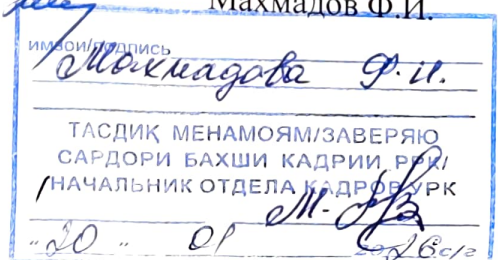 Махмадов Ф.И.
имзои/подпись
Махмадова Ф.И.
ТАСДИҚ МЕНАМОЯМ/ЗАВЕРЯЮ
САРДОРИ БАХШИ КАДРИИ РРК/
НАЧАЛЬНИК ОТДЕЛА КАДРОВ УРК
"20" 01 2026 с/г